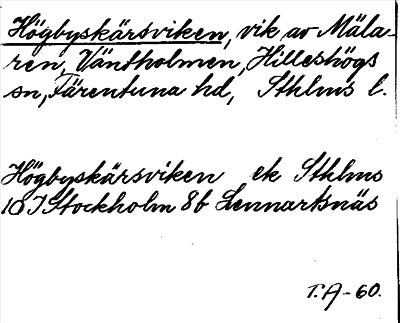 Högbyskärsviken, vik av Mäla-
ren, Väntholmen, Hilleshögs
sn, Färentuna hd, Sthlms l.
Högbyskärsviken ek Sthlms
10I Stockholm 8b Lennartsnäs
T.A-60.